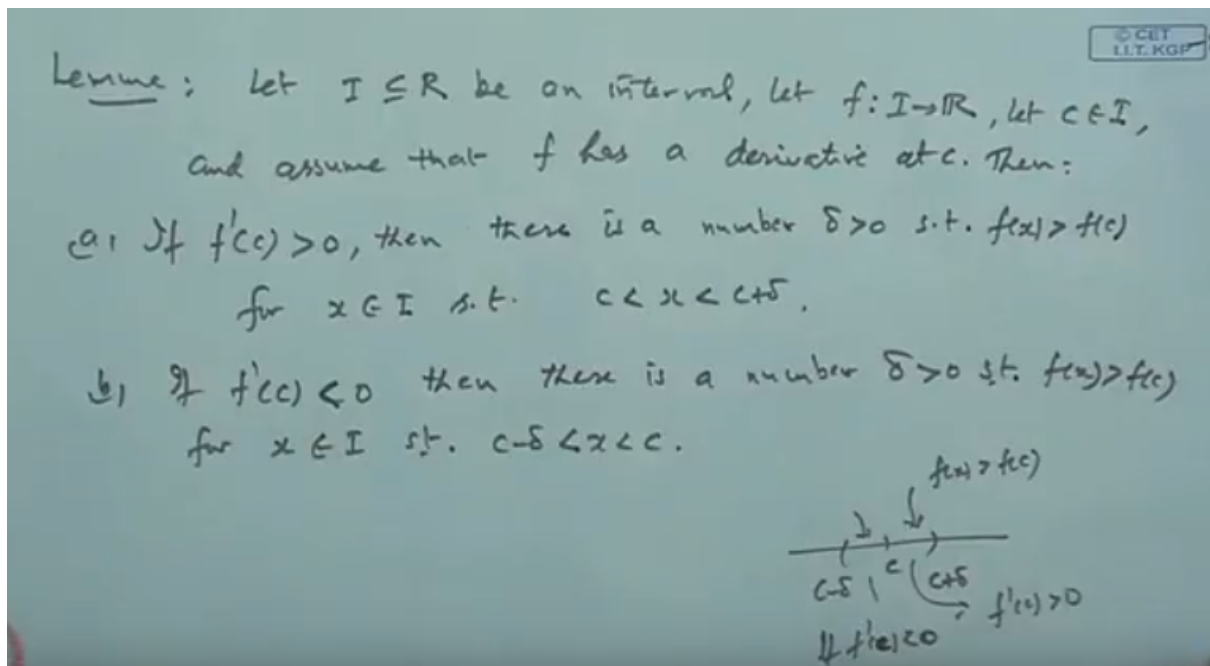 © CET
I.I.T. KGP
Lemma : Let I ⊆ R be an interval, let f: I→R, let c ∈ I,
and assume that f has a derivative at c. Then:
(a) If f'(c) > 0, then there is a number δ > 0 s.t. f(x) > f(c)
for x ∈ I s.t. c < x < c+δ.
b) If f'(c) < 0 then there is a number δ > 0 s.t. f(x) > f(c)
for x ∈ I s.t. c-δ < x < c.
f(x) > f(c)
c-δ c c+δ
f'(c) > 0
If f'(c) < 0